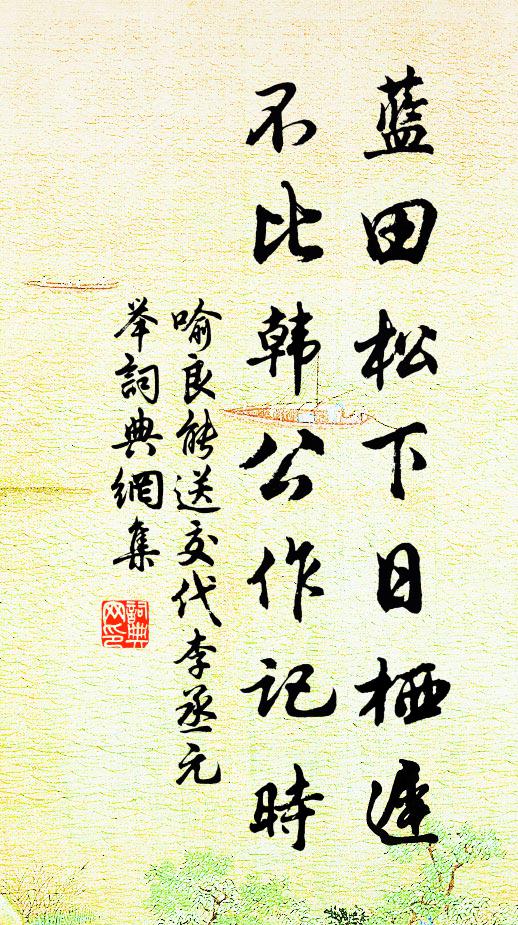 藍田松下日栖遲
不比韩公作记時
喻良能送交代李丞元
举詞典網集
詞典
网印